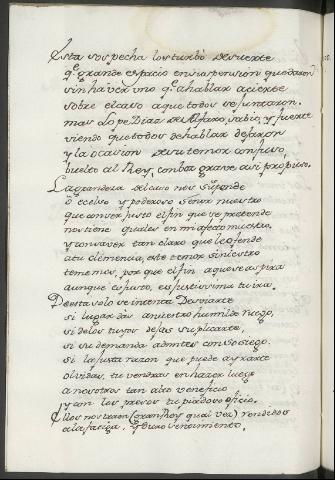 Esta sospecha los turbó de suerte
q̃ grande espacio en suspension quedaron
sin haver uno q̃ a hablar acierte
sobre el caso a que todos se juntaron.
mas Lope Diaz de Alfaro, sabio, y fuerte
viendo que todos de hablar dejaron
y la ocasion de su temor confuso,
buelto al Rey, con boz grave así propuso.
La grandeza del caso nos suspende
ò excelso y poderoso Señor nuestro
que con ser justo el fin que se pretende
nos tiene quales en mi afecto muestro,
y con aver tan claro que le ofende
a tu clemencia, este temor siniestro
tememos, por que el fin a que se aspira
aunque es justo, es justissima tu ira.
De esta solo se intenta desviarte
si lugar das a nuestro humilde ruego,
si de los tuyos dejas suplicarte,
si su demanda admites con sosiego.
Si la justa razon que puede ayrarte
olvidas, tu vendras en hazer luego
a nosotros tan alto beneficio
y con los presos tu piadoso oficio.
Ellos nos traxon (gran Rey qual ves) rendidos
a la fatiga, y duro vencimiento.